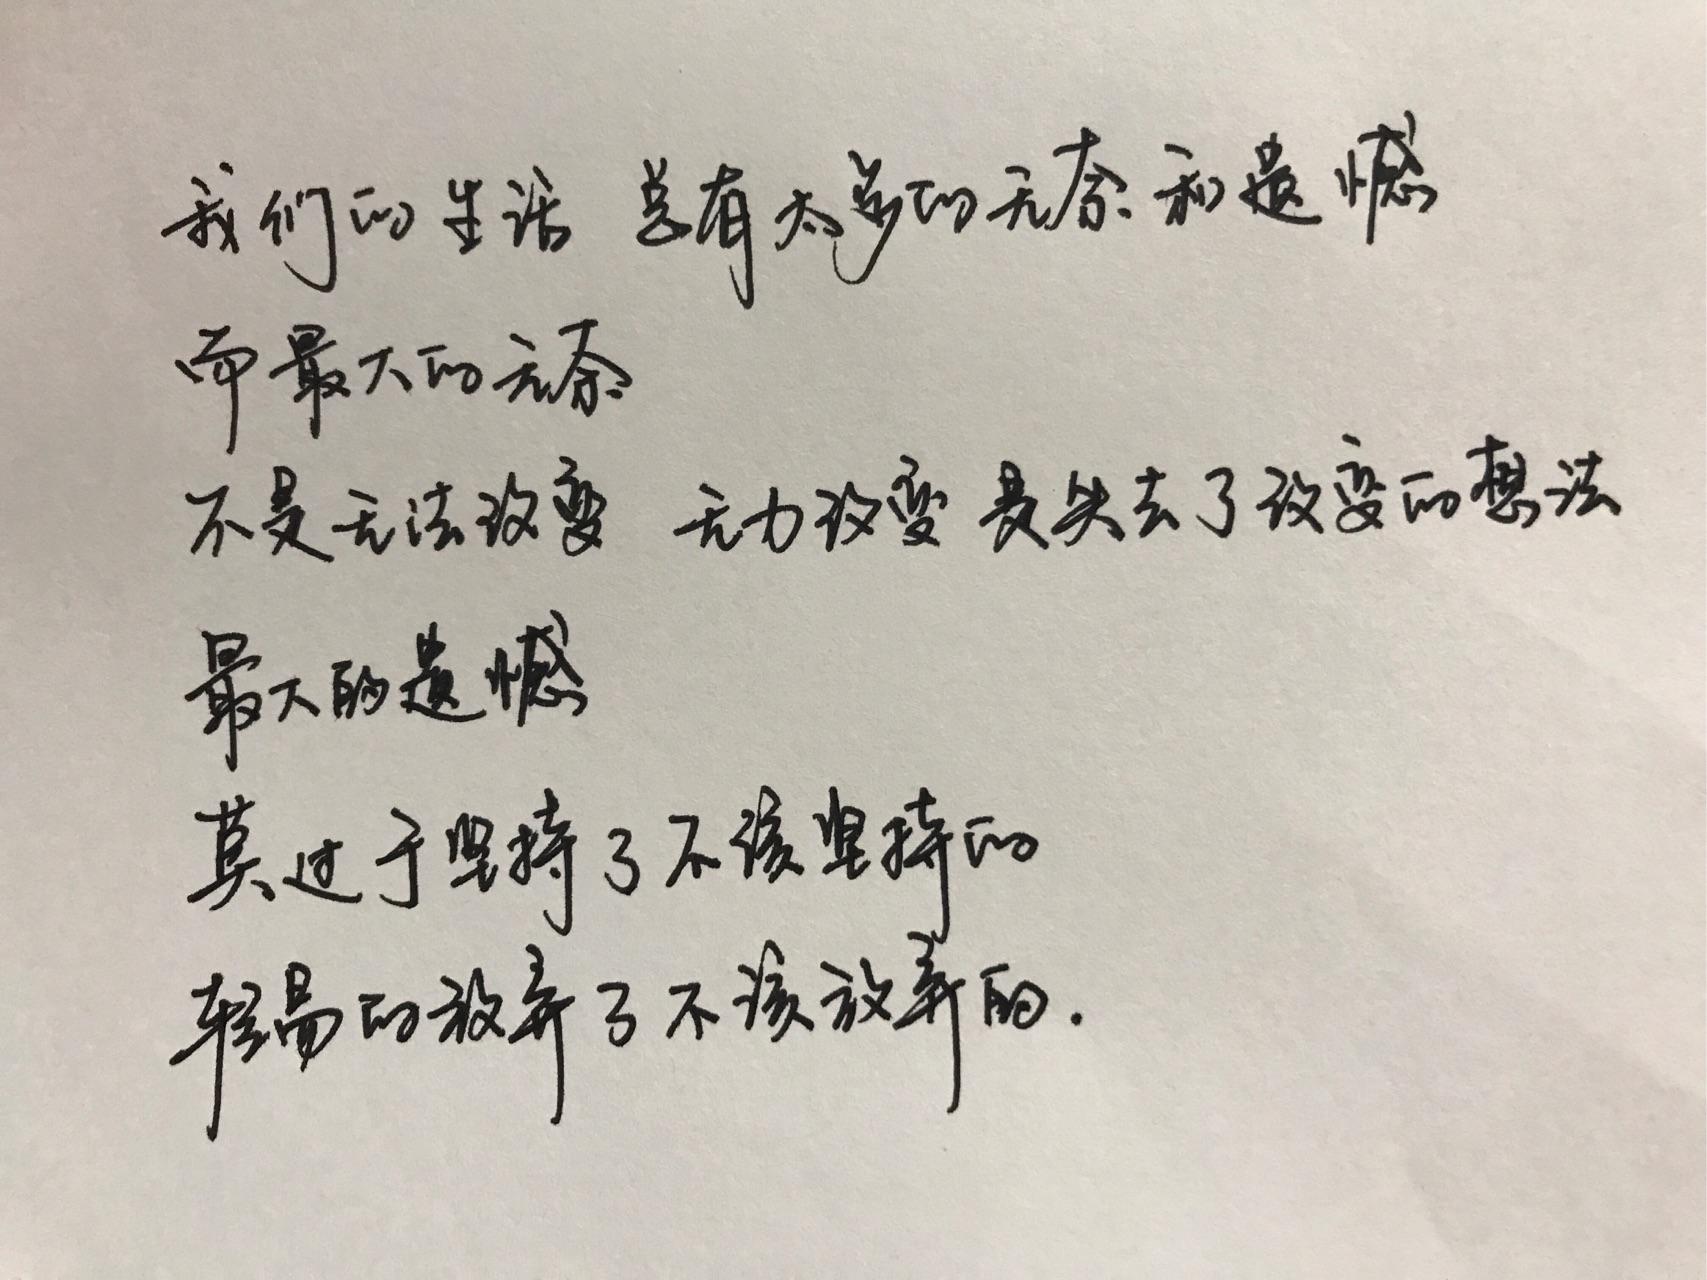 我们的生活 总有太多的无奈和遗憾
而最大的无奈
不是无法改变 无力改变 是失去了改变的想法
最大的遗憾
莫过于坚持了不该坚持的
轻易的放弃了不该放弃的.